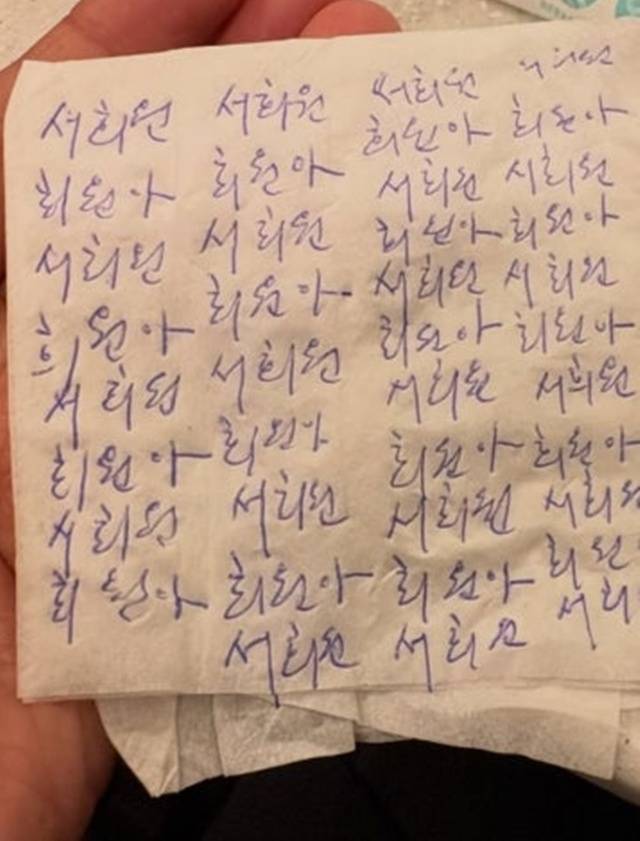 서희원
희원아
서희원
희원아
서희원
희원아
서희원
희원아
서희원
희원아
서희원
희원아
서희원
희원아
서희원
희원아
서희원
서희원
희원아
서희원
희원아
서희원
희원아
서희원
희원아
서희원
희원아
서희원
서희원
희원아
서희원
희원아
서희원
희원아
서희원
희원아
서희원
희원
서희